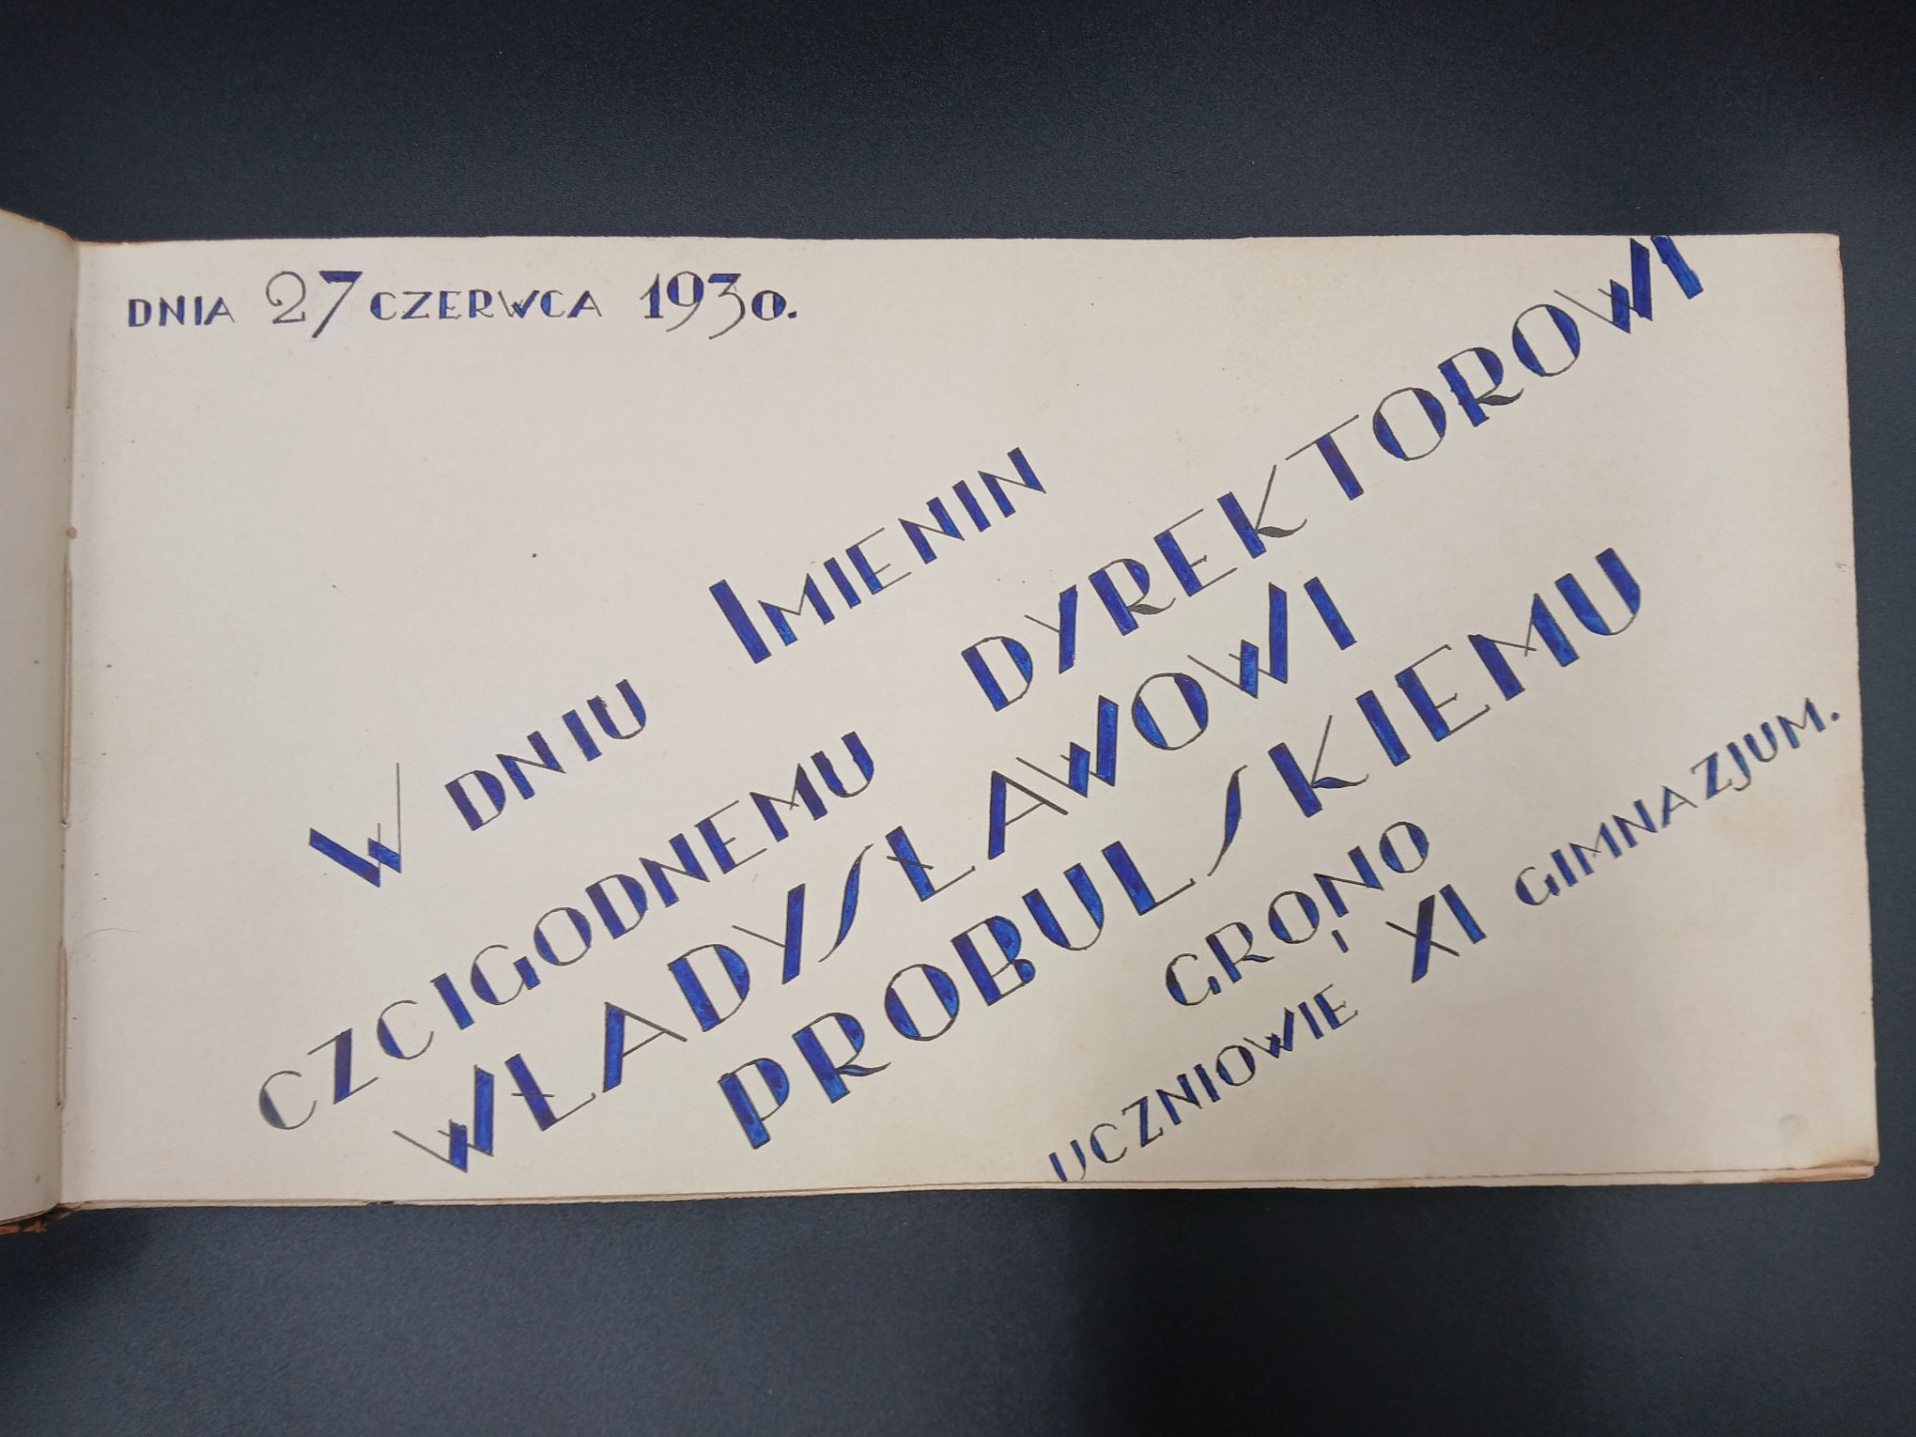 DNIA 27 CZERWCA 1930.
W DNIU IMIENIN
CZCIGODNEMU DYREKTOROWI
WŁADYSŁAWOWI
PROBULSKIEMU
GRONO
I
UCZNIOWIE XI GIMNAZJUM.